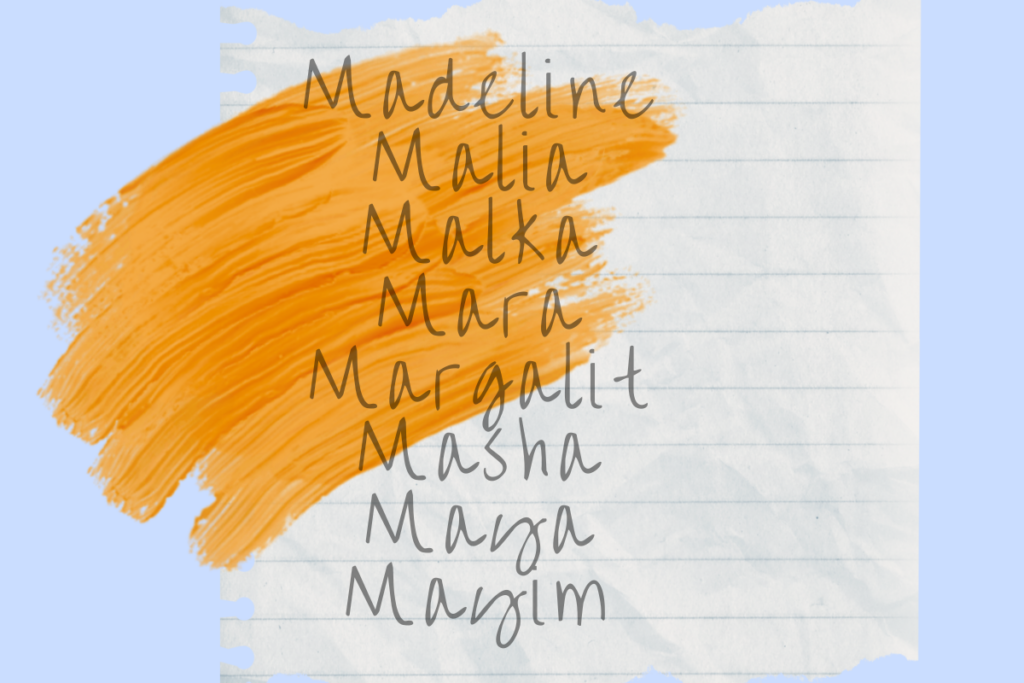 Madeline
Malia
Malka
Mara
Margalit
Masha
Maya
Mayim